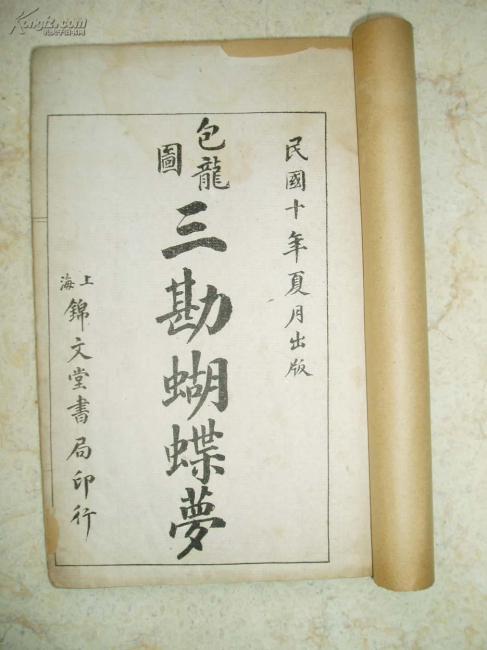 民國十年夏月出版
包龍圖
三勘蝴蝶夢
上海
錦文堂書局印行
Kongfz.com
孔夫子旧书网